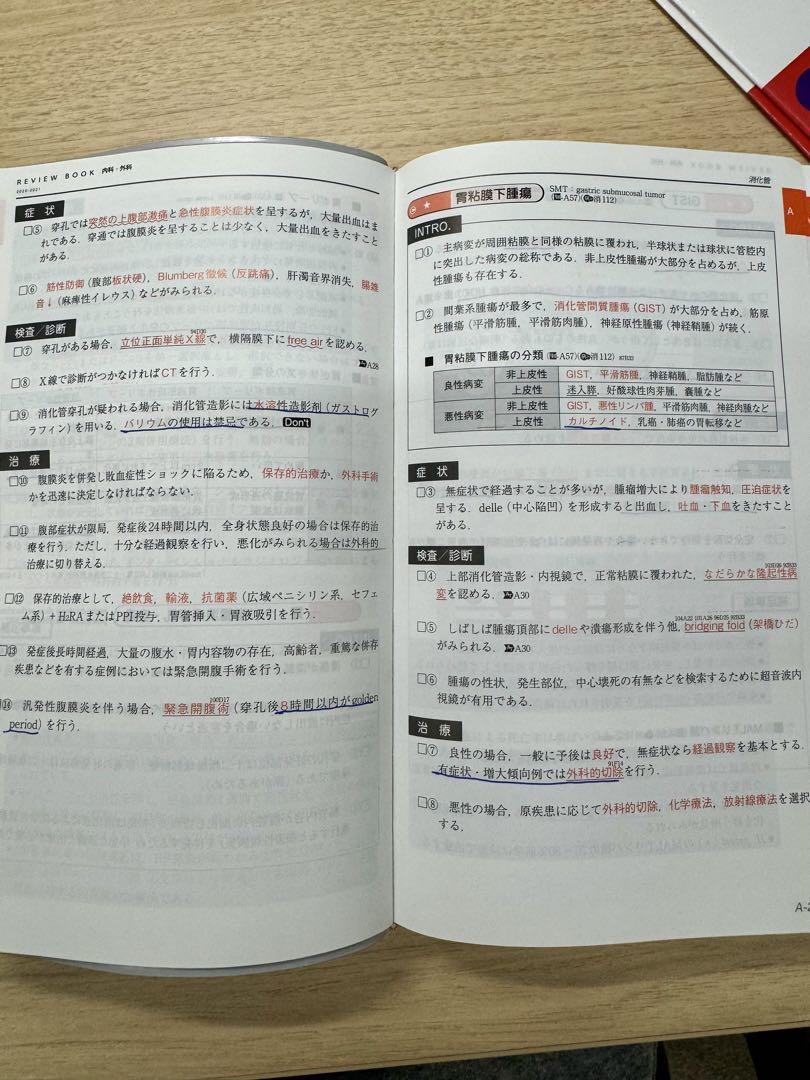 REVIEW BOOK 内科・外科
2020-2021
症 状
□⑤ 穿孔では突然の上腹部激痛と急性腹膜炎症状を呈するが，大量出血はま
れである．穿通では腹膜炎を呈することは少なく，大量出血をきたすことが
ある．
□⑥ 筋性防御（腹部板状硬），Blumberg徴候（反跳痛），肝濁音界消失，腸雑
音↓（麻痺性イレウス）などがみられる．
検査／診断
94D26
□⑦ 穿孔がある場合，立位正面単純X線で，横隔膜下にfree airを認める．
A28
□⑧ X線で診断がつかなければCTを行う．
□⑨ 消化管穿孔が疑われる場合，消化管造影には水溶性造影剤（ガストログ
ラフィン）を用いる．バリウムの使用は禁忌である． Don't
治 療
□⑩ 腹膜炎を併発し敗血症性ショックに陥るため，保存的治療か，外科手術
かを迅速に決定しなければならない．
□⑪ 腹部症状が限局，発症後24時間以内，全身状態良好の場合は保存的治
療を行う．ただし，十分な経過観察を行い，悪化がみられる場合は外科的
治療に切り替える．
□⑫ 保存的治療として，絶飲食，輸液，抗菌薬（広域ペニシリン系，セフェ
ム系）＋H₂RAまたはPPI投与，胃管挿入・胃液吸引を行う．
□⑬ 発症後長時間経過，大量の腹水・胃内容物の存在，高齢者，重篤な併存
疾患などを有する症例においては緊急開腹手術を行う．
100D17
⑭ 汎発性腹膜炎を伴う場合，緊急開腹術（穿孔後8時間以内がgolden
period）を行う．
消化管
A
★ 胃粘膜下腫瘍 SMT：gastric submucosal tumor
A57）（消112）
INTRO.
□① 主病変が周囲粘膜と同様の粘膜に覆われ，半球状または球状に管腔内
に突出した病変の総称である．非上皮性腫瘍が大部分を占めるが，上皮
性腫瘍も存在する．
□② 間葉系腫瘍が最多で，消化管間質腫瘍（GIST）が大部分を占め，筋原
性腫瘍（平滑筋腫，平滑筋肉腫），神経原性腫瘍（神経鞘腫）が続く．
■ 胃粘膜下腫瘍の分類 A57）（消112）
良性病変 非上皮性 GIST，平滑筋腫，神経鞘腫，脂肪腫など
上皮性 迷入膵，好酸球性肉芽腫，嚢腫など
悪性病変 非上皮性 GIST，悪性リンパ腫，平滑筋肉腫，神経肉腫など
上皮性 カルチノイド，乳癌・肺癌の胃転移など
症 状
□③ 無症状で経過することが多いが，腫瘤増大により腫瘤触知，圧迫症状を
呈する．delle（中心陥凹）を形成すると出血し，吐血・下血をきたすことが
ある．
検査／診断
□④ 上部消化管造影・内視鏡で，正常粘膜に覆われた，なだらかな隆起性病
変を認める． A30
104A22 101A26 96D25 92B33
□⑤ しばしば腫瘍頂部にdelleや潰瘍形成を伴う他，bridging fold（架橋ひだ）
がみられる． A30
□⑥ 腫瘍の性状，発生部位，中心壊死の有無などを検索するために超音波内
視鏡が有用である．
治 療
□⑦ 良性の場合，一般に予後は良好で，無症状なら経過観察を基本とする．
91F14
有症状・増大傾向例では外科的切除を行う．
□⑧ 悪性の場合，原疾患に応じて外科的切除，化学療法，放射線療法を選択
する．